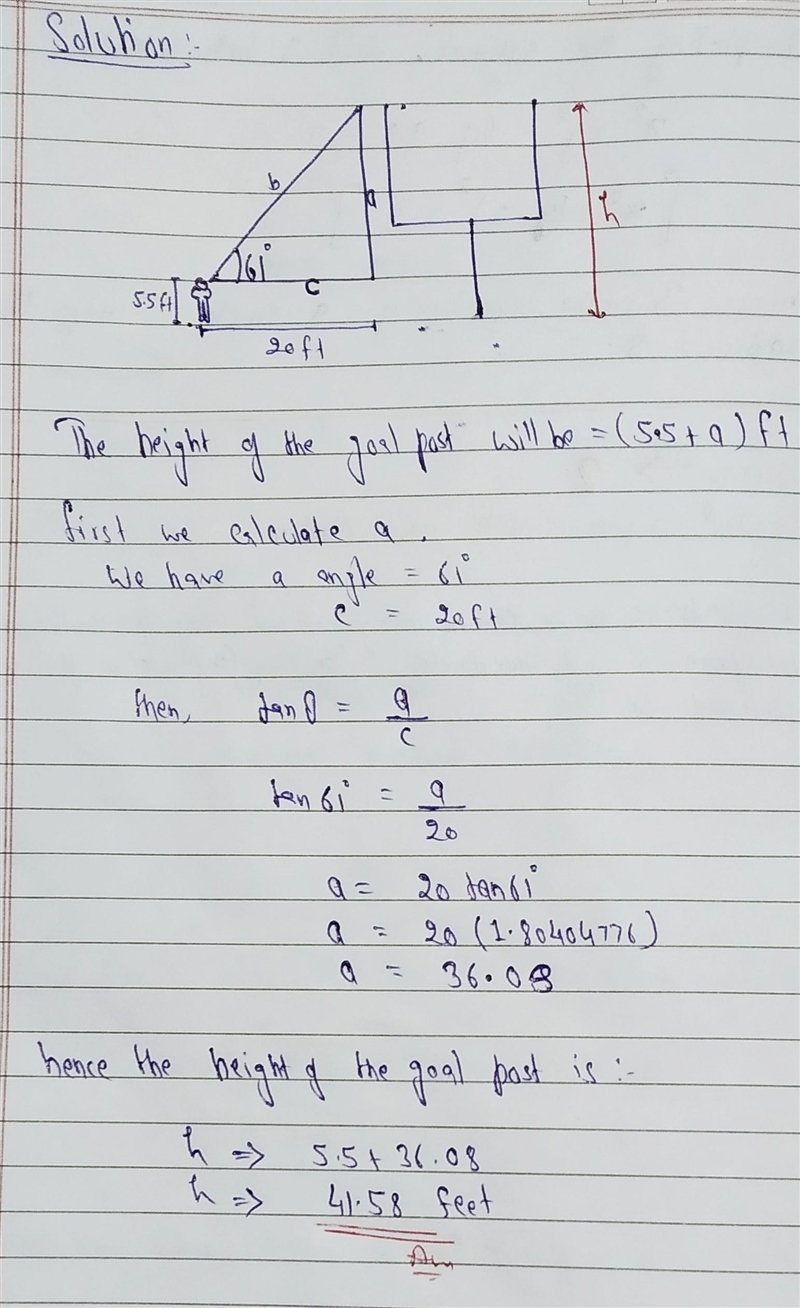 Solution :-
b
a
h
61°
c
5.5ft
20ft
The height of the goal post will be = (5.5 + a) ft
first we calculate a .
We have a angle = 61°
c = 20ft
then, tanθ = a/c
tan 61° = a/20
a = 20 tan61°
a = 20 (1.80404776)
a = 36.08
hence the height of the goal post is :-
h ⇒ 5.5 + 36.08
h ⇒ 41.58 feet
Ans